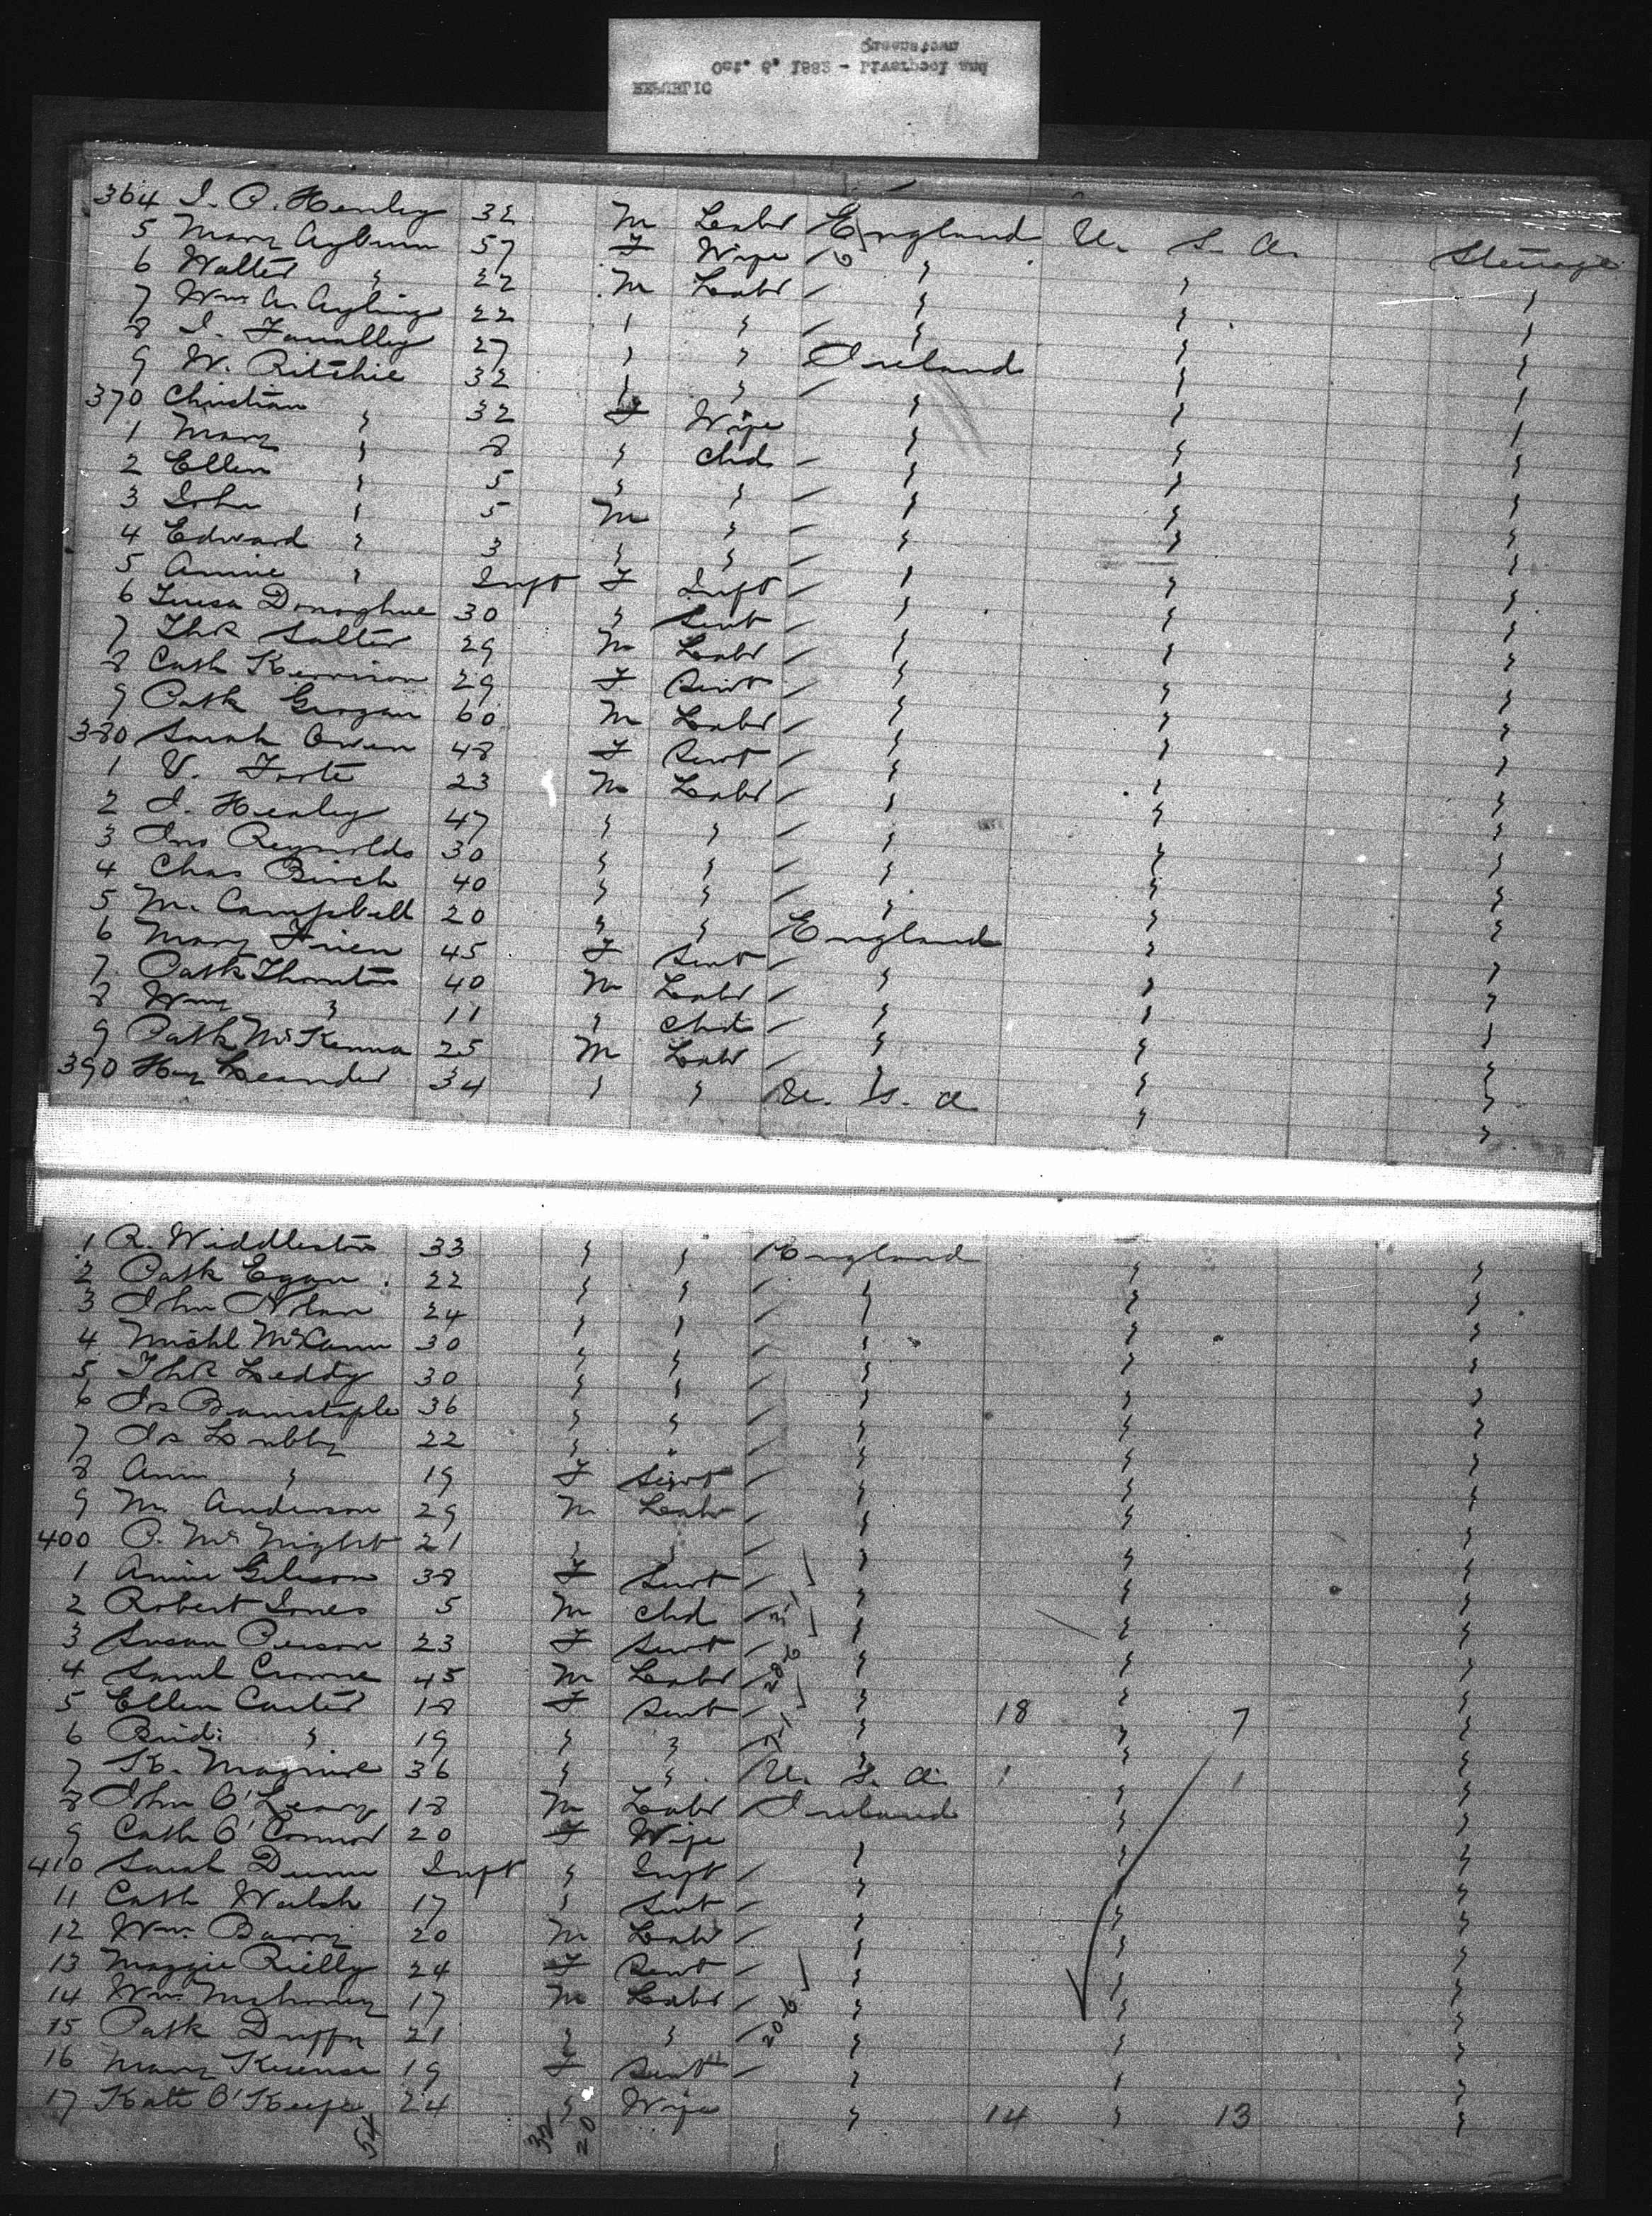 REPUBLIC
Oct. 6, 1883 - Liverpool and
Queenstown
364 J. P. Henley 32 M Labr England U. S. A. Steerage
5 Mary Ayburn 57 F Wife " " "
6 Walter " 22 M Labr " " "
7 Wm A. Ayling 22 " " " " "
8 J. Fanalley 27 " " Ireland " "
9 W. Ritchie 32 " " " " "
370 Christian " 32 F Wife " " "
1 Mary " 8 " Chd " " "
2 Ellen " 5 " " " " "
3 John " 5 M " " " "
4 Edward " 3 " " " " "
5 Annie " Inft F Inft " " "
6 Teresa Donoghue 30 " Servt " " "
7 Thos Salter 29 M Labr " " "
8 Cath Kerrison 29 F Servt " " "
9 Patk Grogan 60 M Labr " " "
380 Sarah Owen 48 F Servt " " "
1 V. Forte 23 M Labr " " "
2 J. Healey 47 " " " " "
3 Jno Reynolds 30 " " " " "
4 Chas Birch 40 " " " " "
5 M. Campbell 20 " " England " "
6 Mary Frien 45 F Servt " " "
7 Patk Thornton 40 M Labr " " "
8 Wm " 11 " Chd " " "
9 Patk McKenna 25 M Labr " " "
390 Hy Leander 34 " " U. S. A " "
1 R. Widdleston 33 " " England " "
2 Patk Egan 22 " " " " "
3 John Nolan 24 " " " " "
4 Michl McKann 30 " " " " "
5 Thos Leddy 30 " " " " "
6 Js Barnstaple 36 " " " " "
7 Js Lubby 22 " " " " "
8 Ann " 19 F Servt " " "
9 M. Anderson 29 M Labr " " "
400 P. McNight 21 " " " " "
1 Annie Gibson 38 F Servt " " "
2 Robert Jones 5 M Chd " " "
3 Susan Pierson 23 F Servt " " "
4 Saml Crowne 45 M Labr " " "
5 Ellen Carter 18 F Servt " 18 " 7 "
6 Brid: " 19 " " " " "
7 K. Maguire 36 " " U. S. A. 1 " 1 "
8 John O'Leary 18 M Labr Ireland " "
9 Cath O'Connor 20 F Wife " " "
410 Sarah Dunn Inft " Inft " " "
11 Cath Walsh 17 " Servt " " "
12 Wm Barry 20 M Labr " " "
13 Maggie Reilly 24 F Servt " " "
14 Wm Mahoney 17 M Labr " " "
15 Patk Duffy 21 " " " " "
16 Mary Kiernan 19 F Servt " " "
17 Kate O'Keefe 24 " Wife " 14 " 13 "
52 32 20